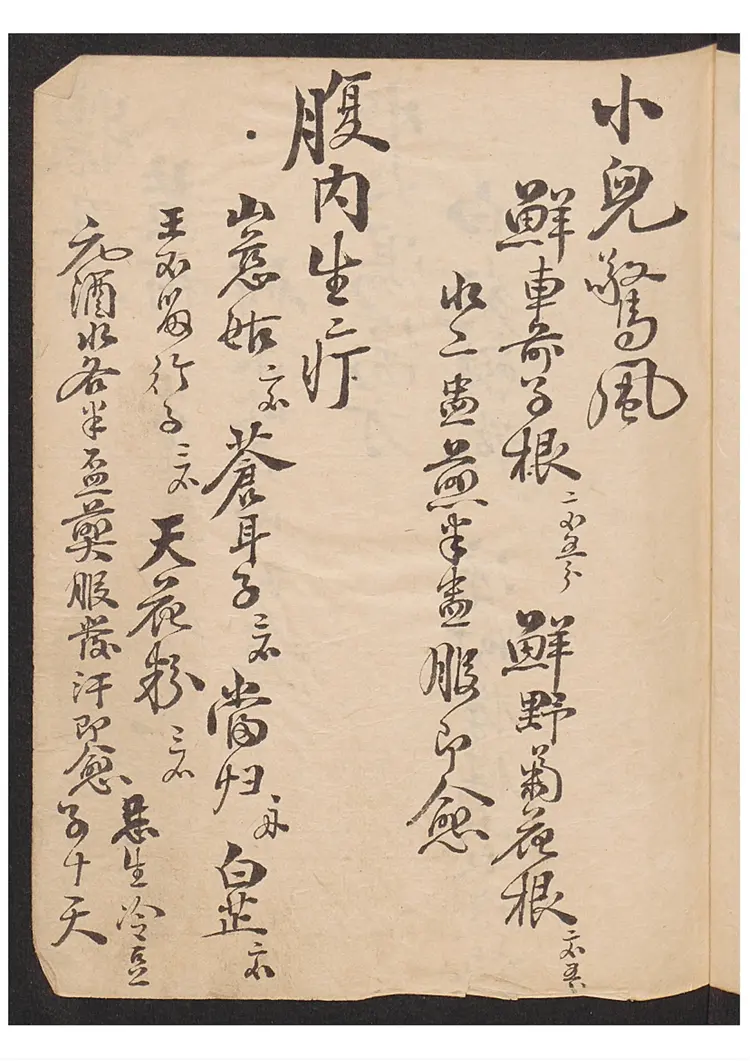 小兒驚風
鮮車前子根二錢五分 鮮野菊花根二錢五分
水二盅煎半盅服即愈
腹内生疔
山慈姑二錢 蒼耳子二錢 當归 白芷二錢
王不畄行子三錢 天花粉三錢
忌生冷豆
元酒水各半盃煎服發汗即愈 十天